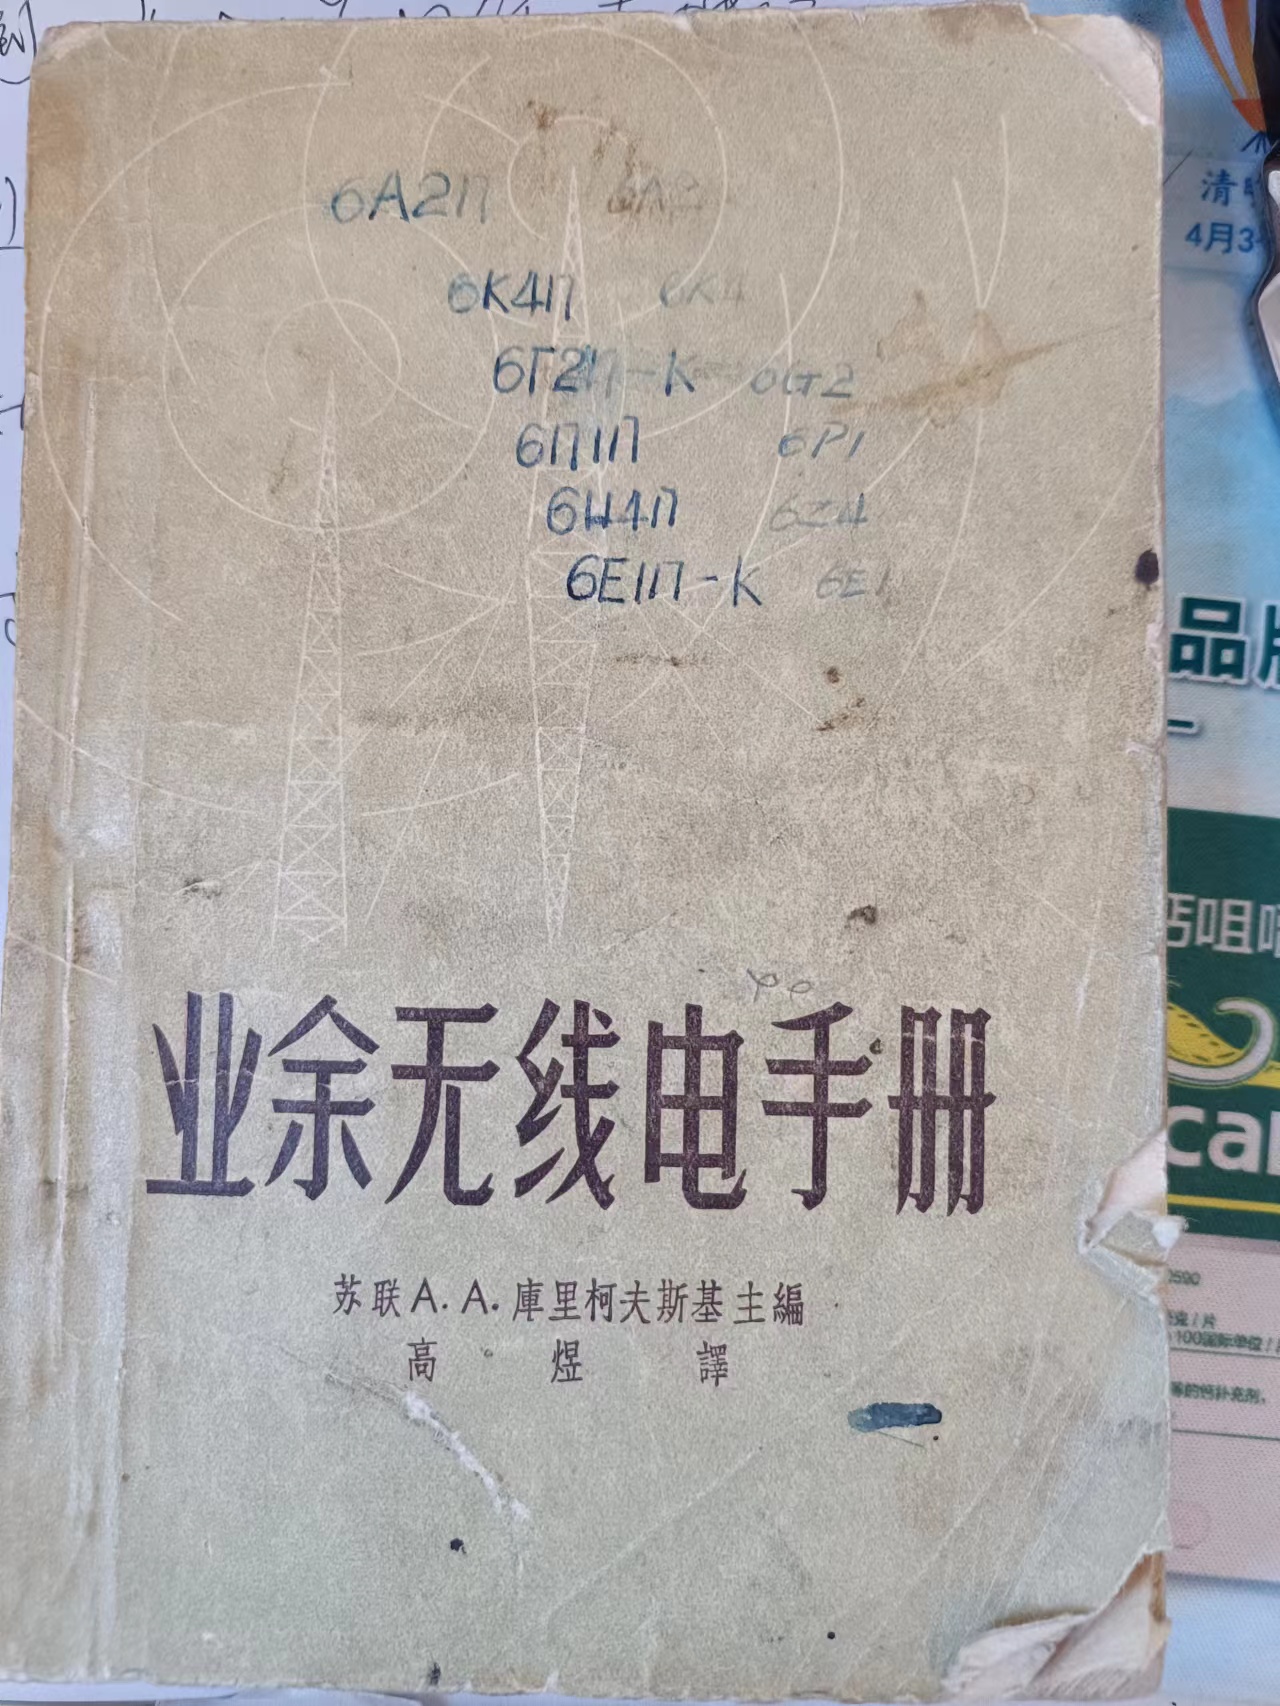 6А2П 6A2
6К4П 6K4
6Г2П-К 6G2
6П1П 6P1
6Ц4П 6Z4
6Е1П-К 6E1
业余无线电手册
苏联A.A.庫里柯夫斯基主編
高煜譯
清
4月3
品
咀
ca
0590
/片
100国际单位/
等的钙补充剂,